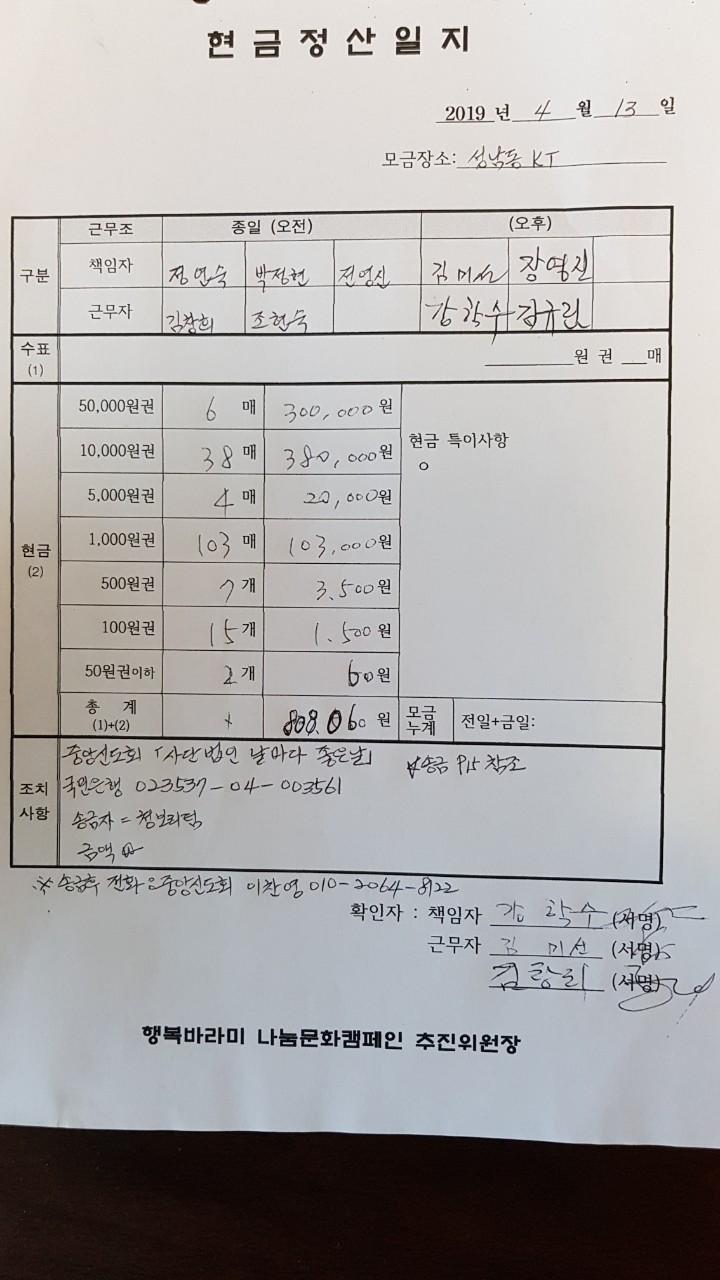 현금정산일지
2019 년 4 월 13 일
모금장소: 성남동 KT
구분 근무조 종일 (오전) (오후)
책임자 정연숙 박정현 전영신 김미선 장영신
근무자 김창희 조현숙 강학수 김규린
수표 (1) 원 권 매
현금 (2)
50,000원권 6 매 300,000원
10,000원권 38 매 380,000원
5,000원권 4 매 20,000원
1,000원권 103 매 103,000원
500원권 7 개 3.500원
100원권 15 개 1.500원
50원권이하 2 개 60원
현금 특이사항
o
총 계 (1)+(2) 808.060 원 모금 누계 전일+금일:
조치 사항
중앙신도회 「사단법인 날마다 좋은날」 송금 P15 참조
국민은행 023537-04-003561
송금자 = 청보리탁
금액
※ 송금후 전화 중앙신도회 이창영 010-2064-8122
확인자 : 책임자 강 학수 (서명)
근무자 김 미선 (서명)
김창희 (서명)
행복바라미 나눔문화캠페인 추진위원장